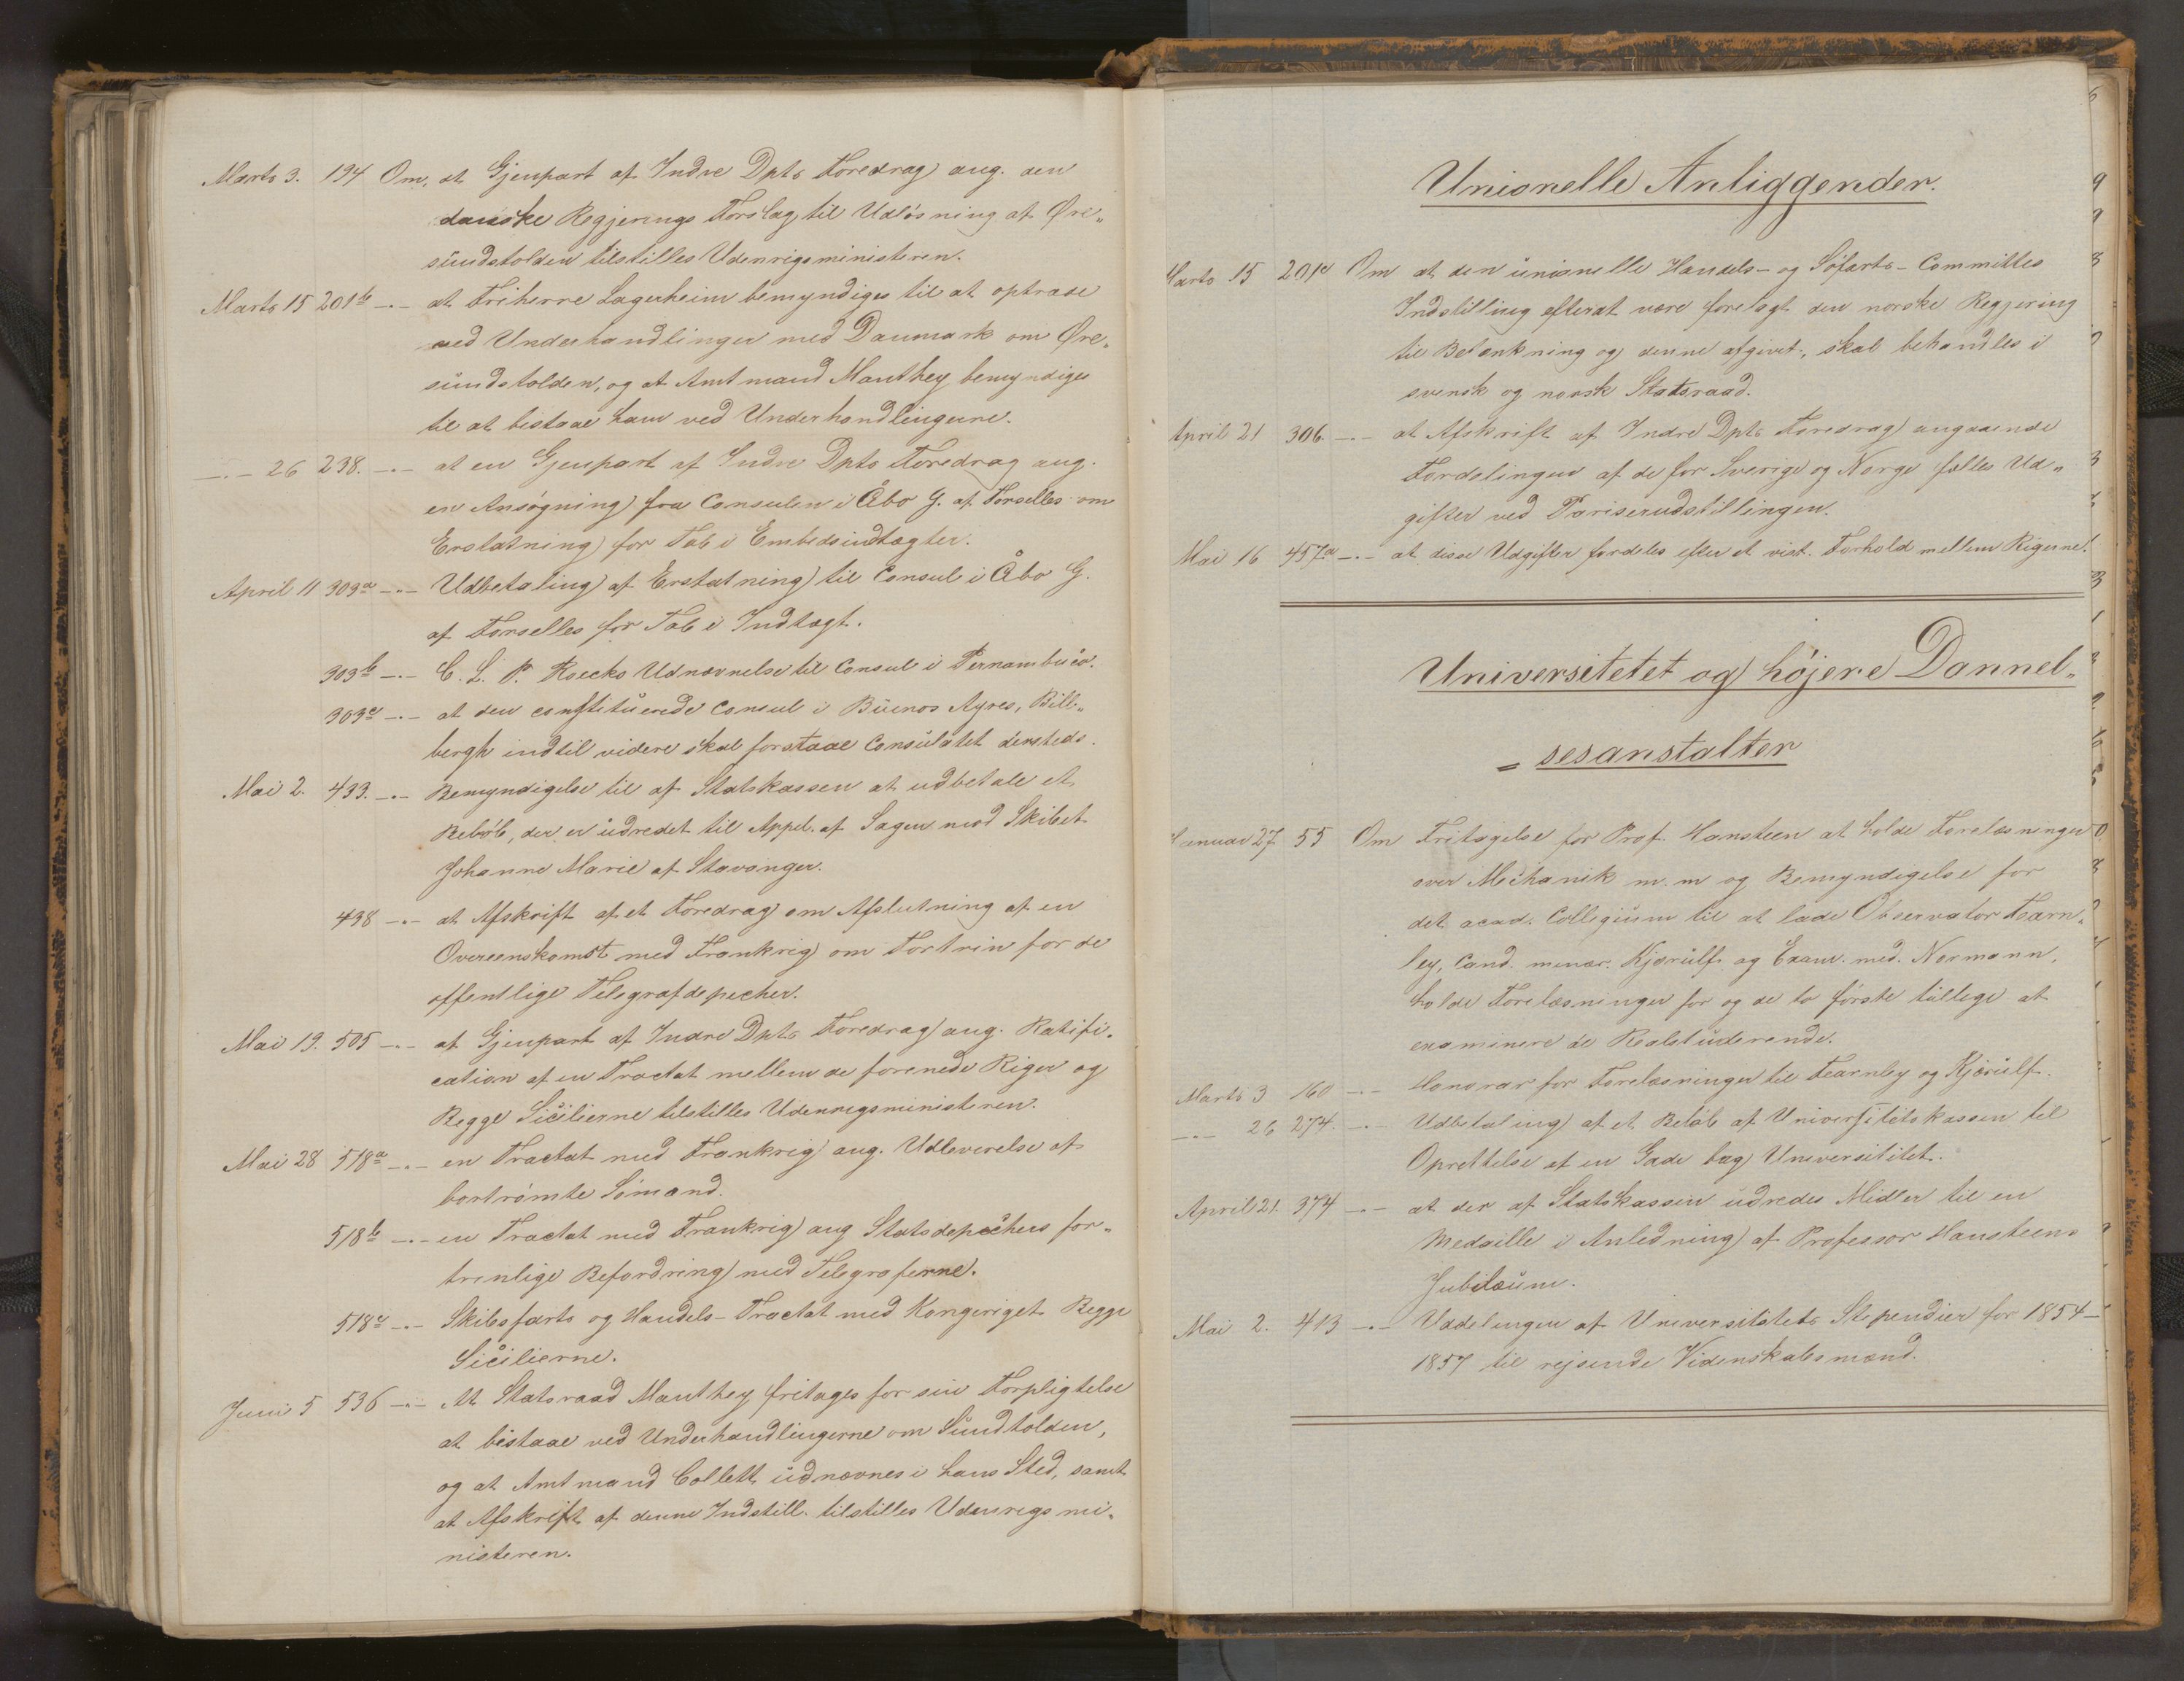 Marts 3. 194 Om, at Gjenpart af Indre Dpts Foredrag ang. den
danske Regjerings Forslag til Udløsning af Øre„
sundstolden tilstilles Udenrigsministeren.
Marts 15 201b -.- at Friherre Lagerheim bemyndiges til at optræde
ved Underhandlinger med Danmark om Øre„
sundstolden, og at Amtmand Manthey bemyndiges
til at bistaae ham ved Underhandlingerne.
-.- 26 238. -.- at en Gjenpart af Indre Dpts Foredrag ang.
en Ansøgning fra Consulen i Åbo G. af Forselles om
Erstatning for Tab i Embedsindtægter.
April 11 303a -.- Udbetaling af Erstatning til Consul i Åbo G.
af Forselles for Tab i Indtægt.
303b -.- C. L. P. Roecks Udnævnelse til Consul i Pernambuco.
303c -.- at den constituerede Consul i Buenos Ayres, Bill„
bergh indtil videre skal forstaae Consulatet dersteds.
Mai 2. 433. -.- Bemyndigelse til af Statskassen at udbetale et
Beløb, der er udredet til Appel. af Sagen mod Skibet
Johanne Marie af Stavanger.
438 -.- at Afskrift af et Foredrag om Afslutning af en
Overeenskomst med Frankrig om Fortrin for de
offentlige Telegrafdepecher.
Mai 19. 505 -.- at Gjenpart af Indre Dpts Foredrag ang. Ratifi„
cation af en Tractat mellem de forenede Riger og
Begge Sicilierne tilstilles Udenrigsministeren.
Mai 28 518a -.- en Tractat med Frankrig ang. Udleverelse af
bortrømte Sømænd.
518b -.- en Tractat med Frankrig ang Statsdepechers for„
trinlige Befordring med Telegraferne.
518c -.- Skibsfarts og Handels-Tractat med Kongeriget Begge
Sicilierne.
Juni 5 536 -.- At Statsraad Manthey fritages for sin Forpligtelse
at bistaae ved Underhandlingerne om Sundtolden,
og at Amtmand Collett udnævnes i hans Sted, samt
at Afskrift af denne Indstill. tilstilles Udenrigsmi„
nisteren.
Unionelle Anliggender.
Marts 15 201c Om at den unionelle Handels- og Søfarts-Committes
Indstilling efterat være forelagt den norske Regjering
til Betænkning og denne afgivet, skal behandles i
svensk og norsk Statsraad.
April 21 306. -.- at Afskrift af Indre Dpts Foredrag angaaende
Fordelingen af de for Sverige og Norge fælles Ud„
gifter ved Pariserudstillingen.
Mai 16 457a -.- at disse Udgifter fordeles efter et vist Forhold mellem Rigerne.
Universitetet og højere Dannel„
„ sesanstalter
Januar 27 55 Om Fritagelse for Prof. Hansteen at holde Forelæsninger
over Mechanik m. m og Bemyndigelse for
det acad. Collegium til at lade Observator Fearn„
ley, Cand. miner. Kjerulf og Exam. med. Normann,
holde Forelæsninger for og de to første tillige at
examinere de Realstuderende.
Marts 3 160 -.- Honorar for Forelæsninger til Fearnley og Kjerulf.
-.- 26 274. -.- Udbetaling af et Beløb af Universitetskassen til
Oprettelse af en Gade bag Universitetet.
April 21. 374 -.- at der af Statskassen udredes Midler til en
Medaille i Anledning af Professor Hansteens
Jubilæum.
Mai 2. 413 -.- Uddelingen af Universitetets Stipendier for 1854-
1857 til rejsende Videnskabsmænd.